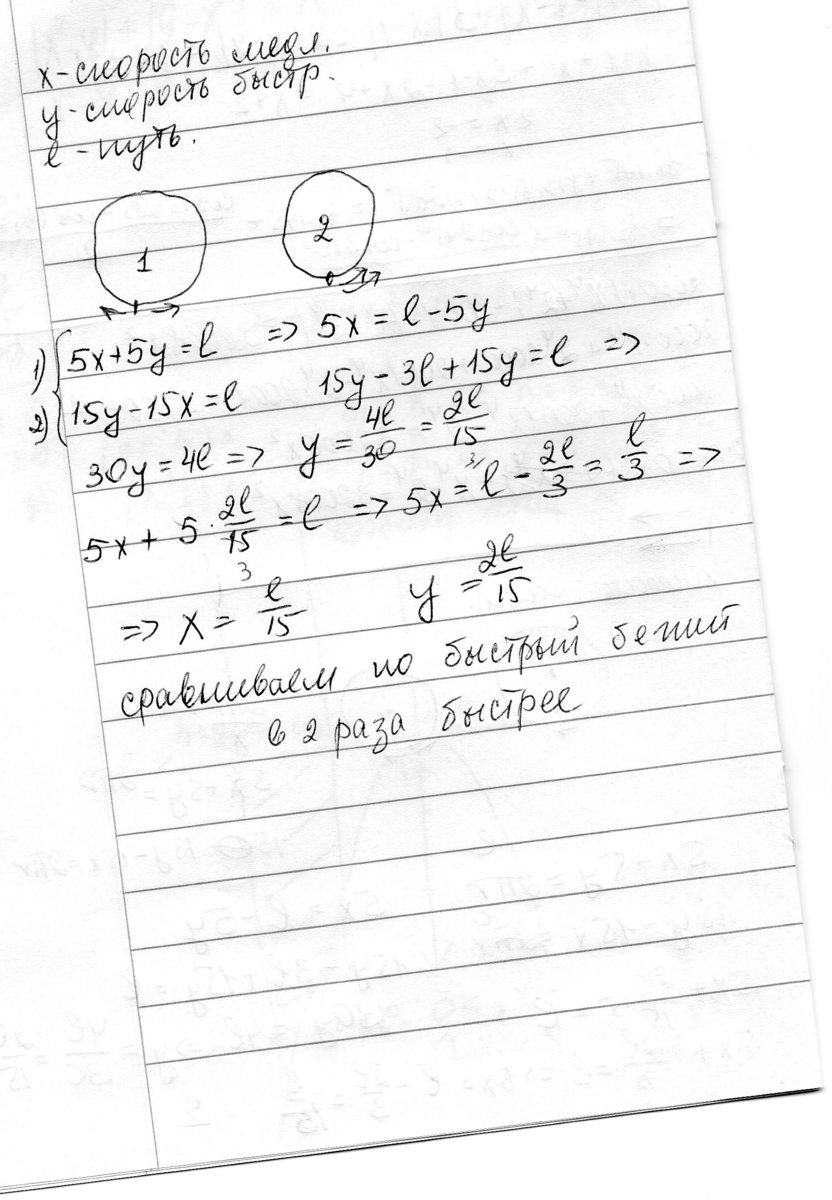 x-скорость медл.
y-скорость быстр.
l-путь.
1 2
1) 5x+5y=l => 5x=l-5y
2) 15y-15x=l 15y-3l+15y=l =>
30y=4l => y=4l/30=2l/15
5x+5·2l/15=l => 5x=l-2l/3=l/3 =>
3
=> x=l/15 y=2l/15
сравниваем но быстрый бежит
в 2 раза быстрее